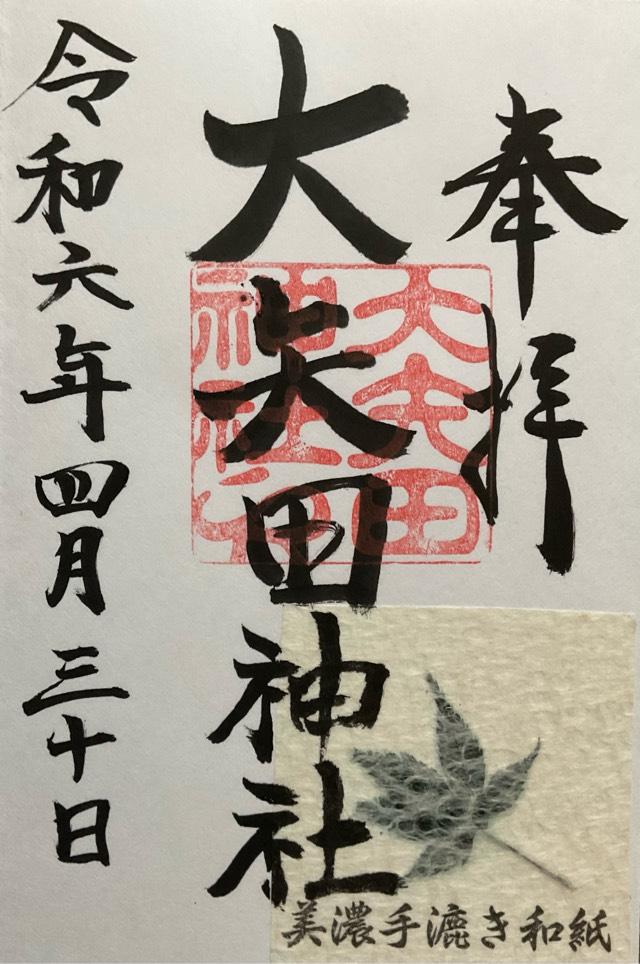 奉拝
大矢田神社
大矢田神社印
令和六年四月三十日
美濃手漉き和紙